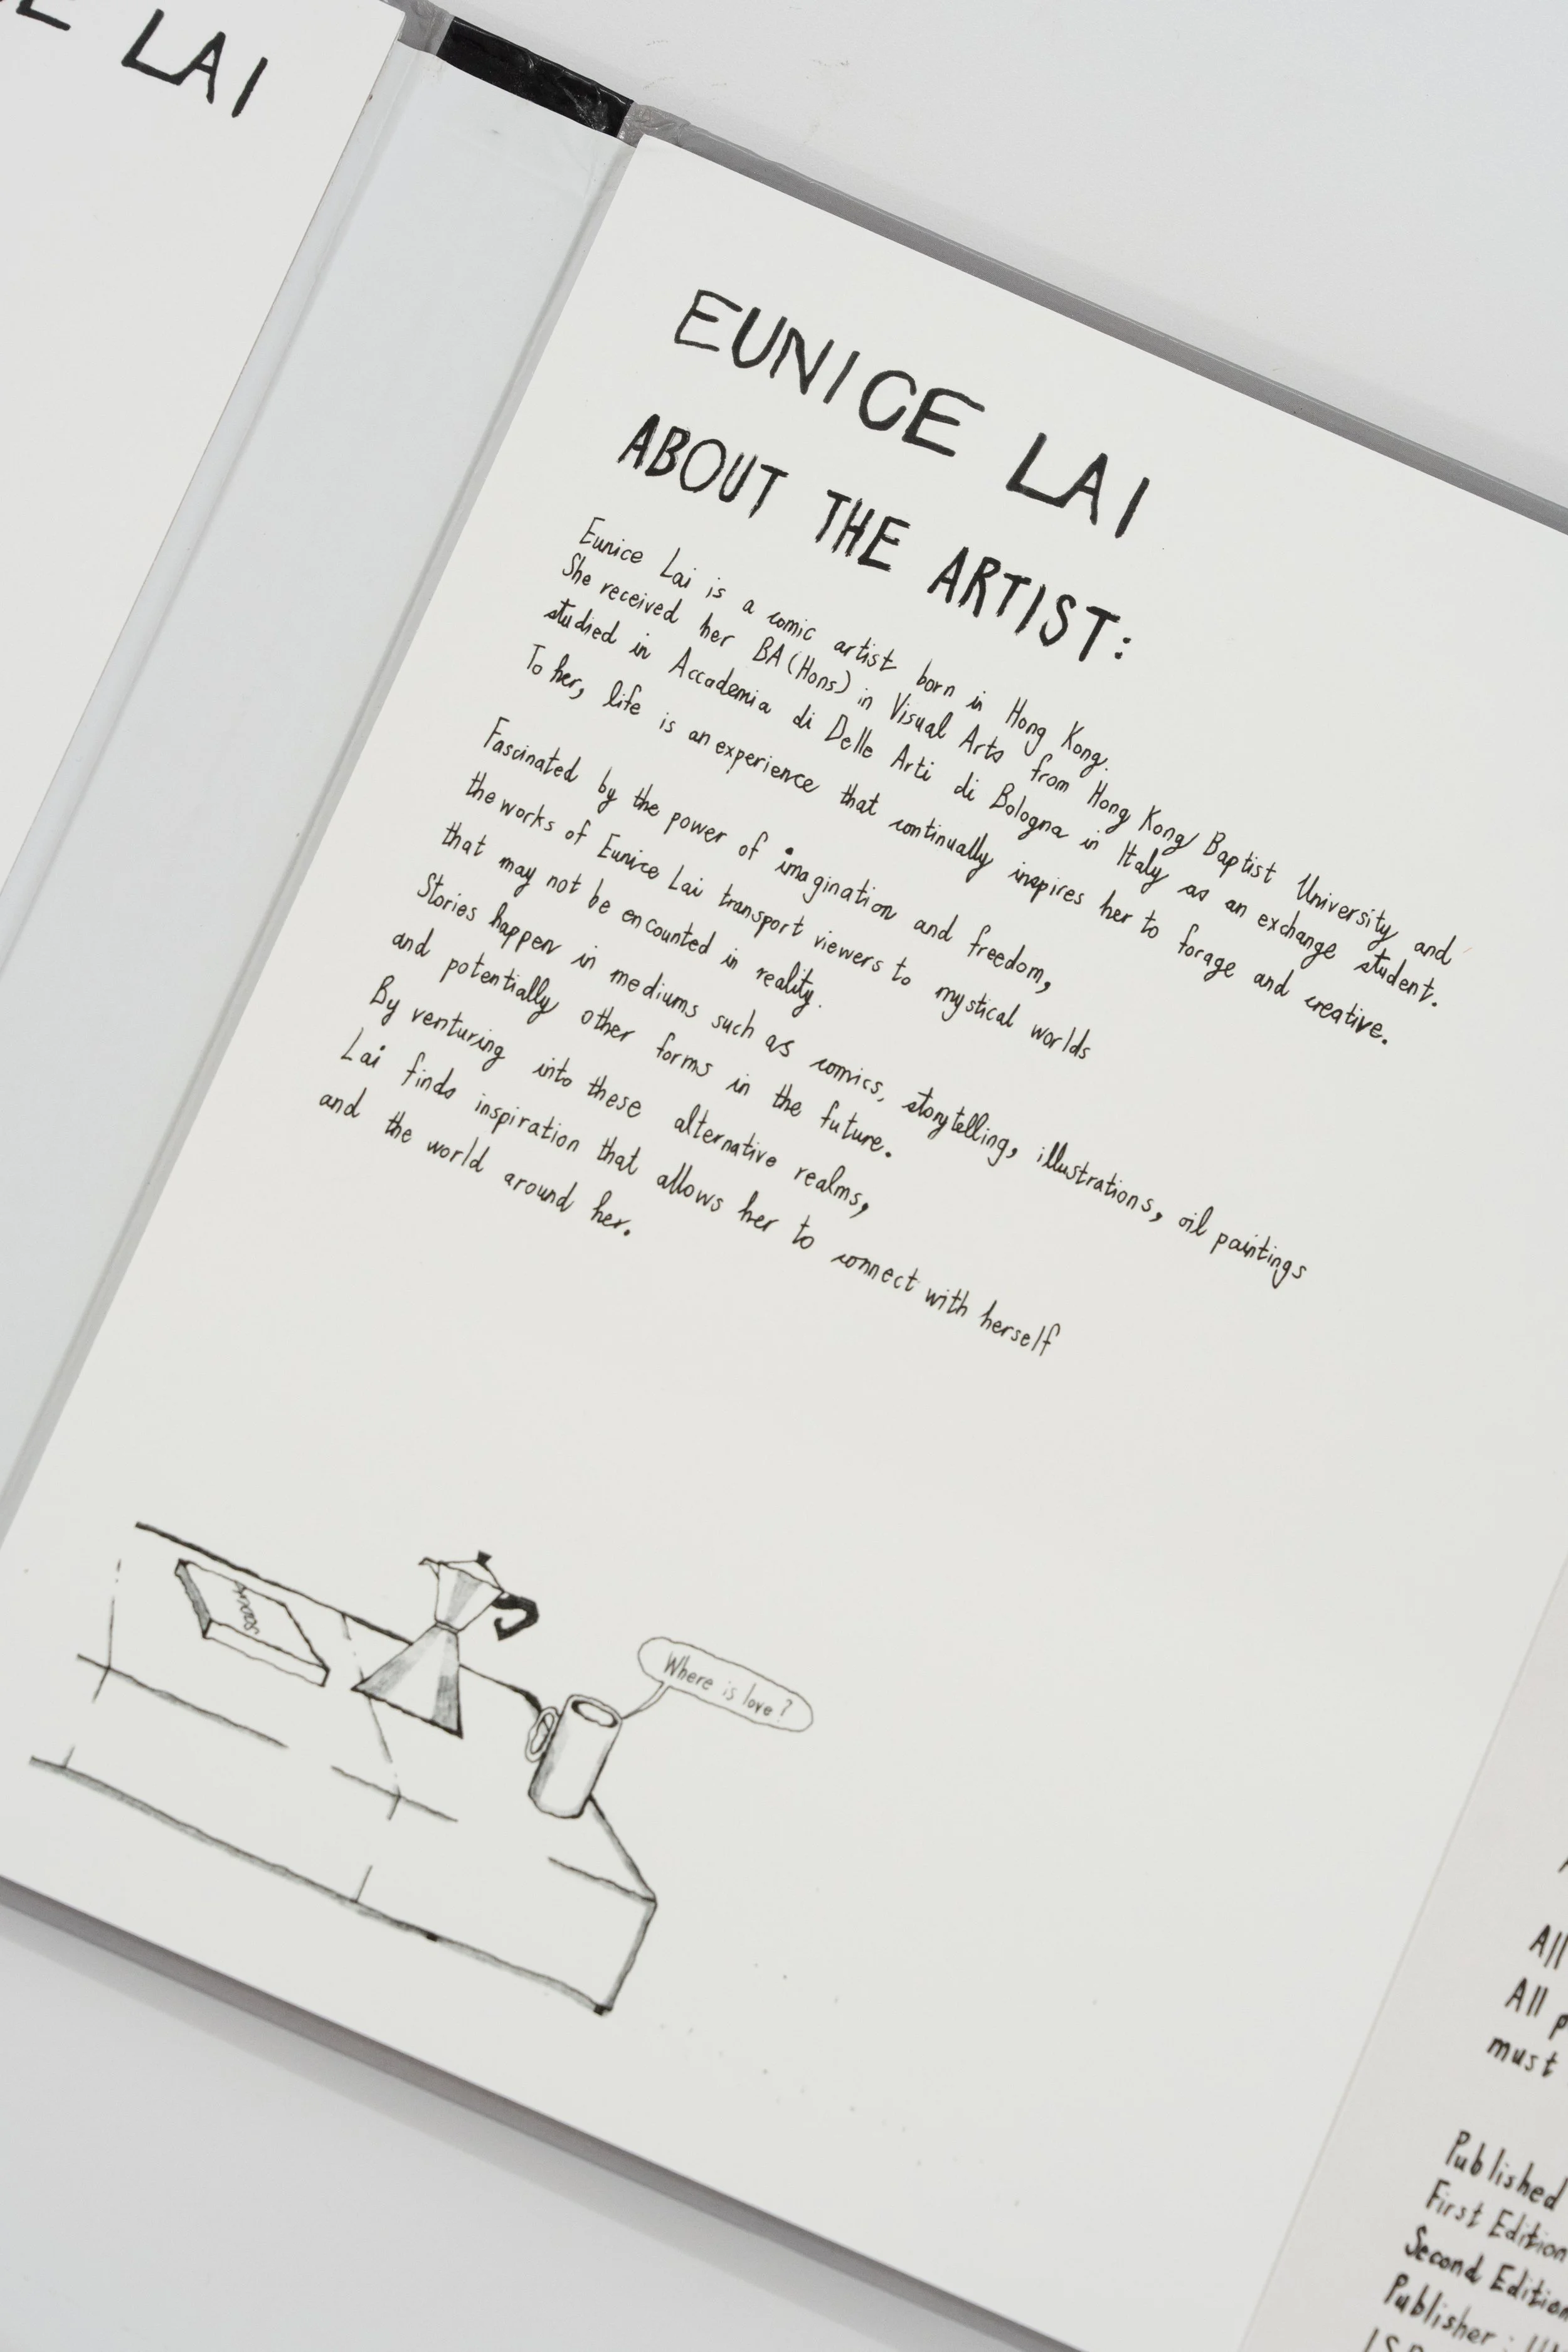 LAI
EUNICE LAI
ABOUT THE ARTIST:
Eunice Lai is a comic artist born in Hong Kong.
She received her BA (Hons) in Visual Arts from Hong Kong Baptist University and
studied in Accademia di Delle Arti di Bologna in Italy as an exchange student.
To her, life is an experience that continually inspires her to forage and creative.
Fascinated by the power of imagination and freedom,
the works of Eunice Lai transport viewers to mystical worlds
that may not be encounted in reality.
Stories happen in mediums such as comics, storytelling, illustrations, oil paintings
and potentially other forms in the future.
By venturing into these alternative realms,
Lai finds inspiration that allows her to connect with herself
and the world around her.
Where is love?
All
All p
must
Published
First Edition
Second Edition
Publisher :